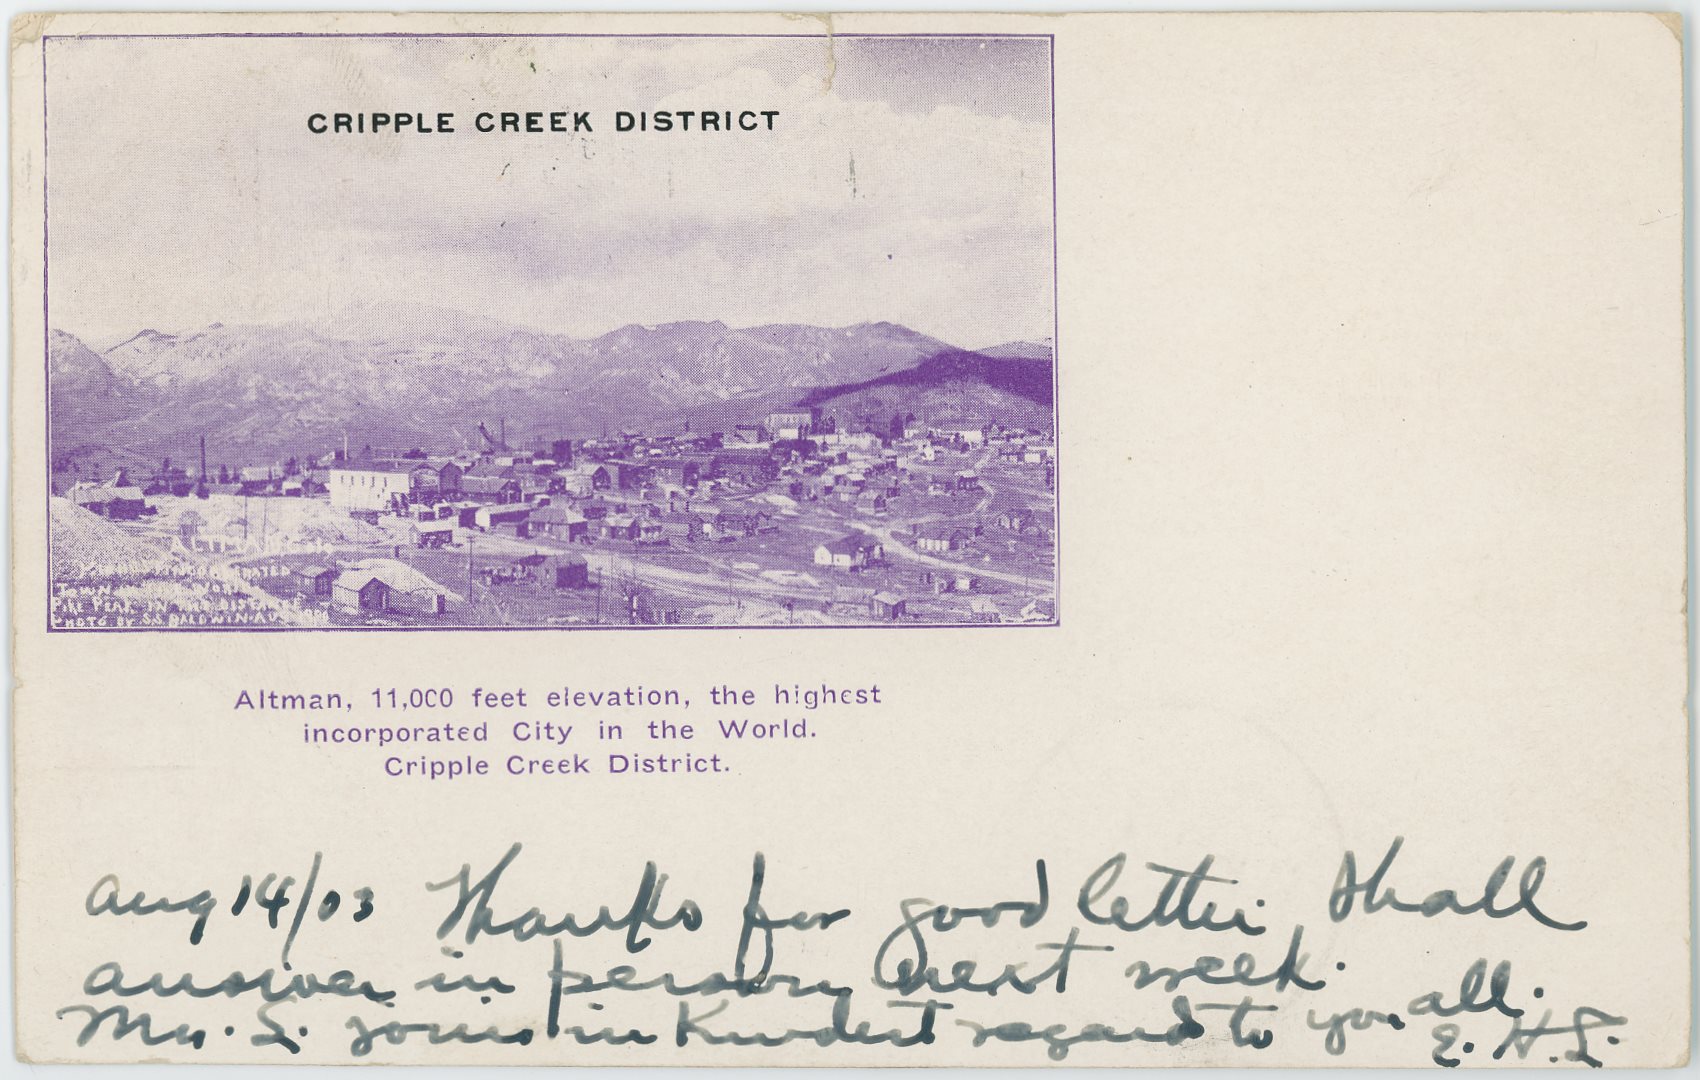 CRIPPLE CREEK DISTRICT
TOWN
PIKE PEAK IN THE DISTANCE
PHOTO BY S.S. BALDWIN
Altman, 11,000 feet elevation, the highest
incorporated City in the World.
Cripple Creek District.
Aug 14/03 Thanks for good letter. Shall
answer in person next week.
Mrs. S. joins in Kindest regard to you all.
E. H. S.